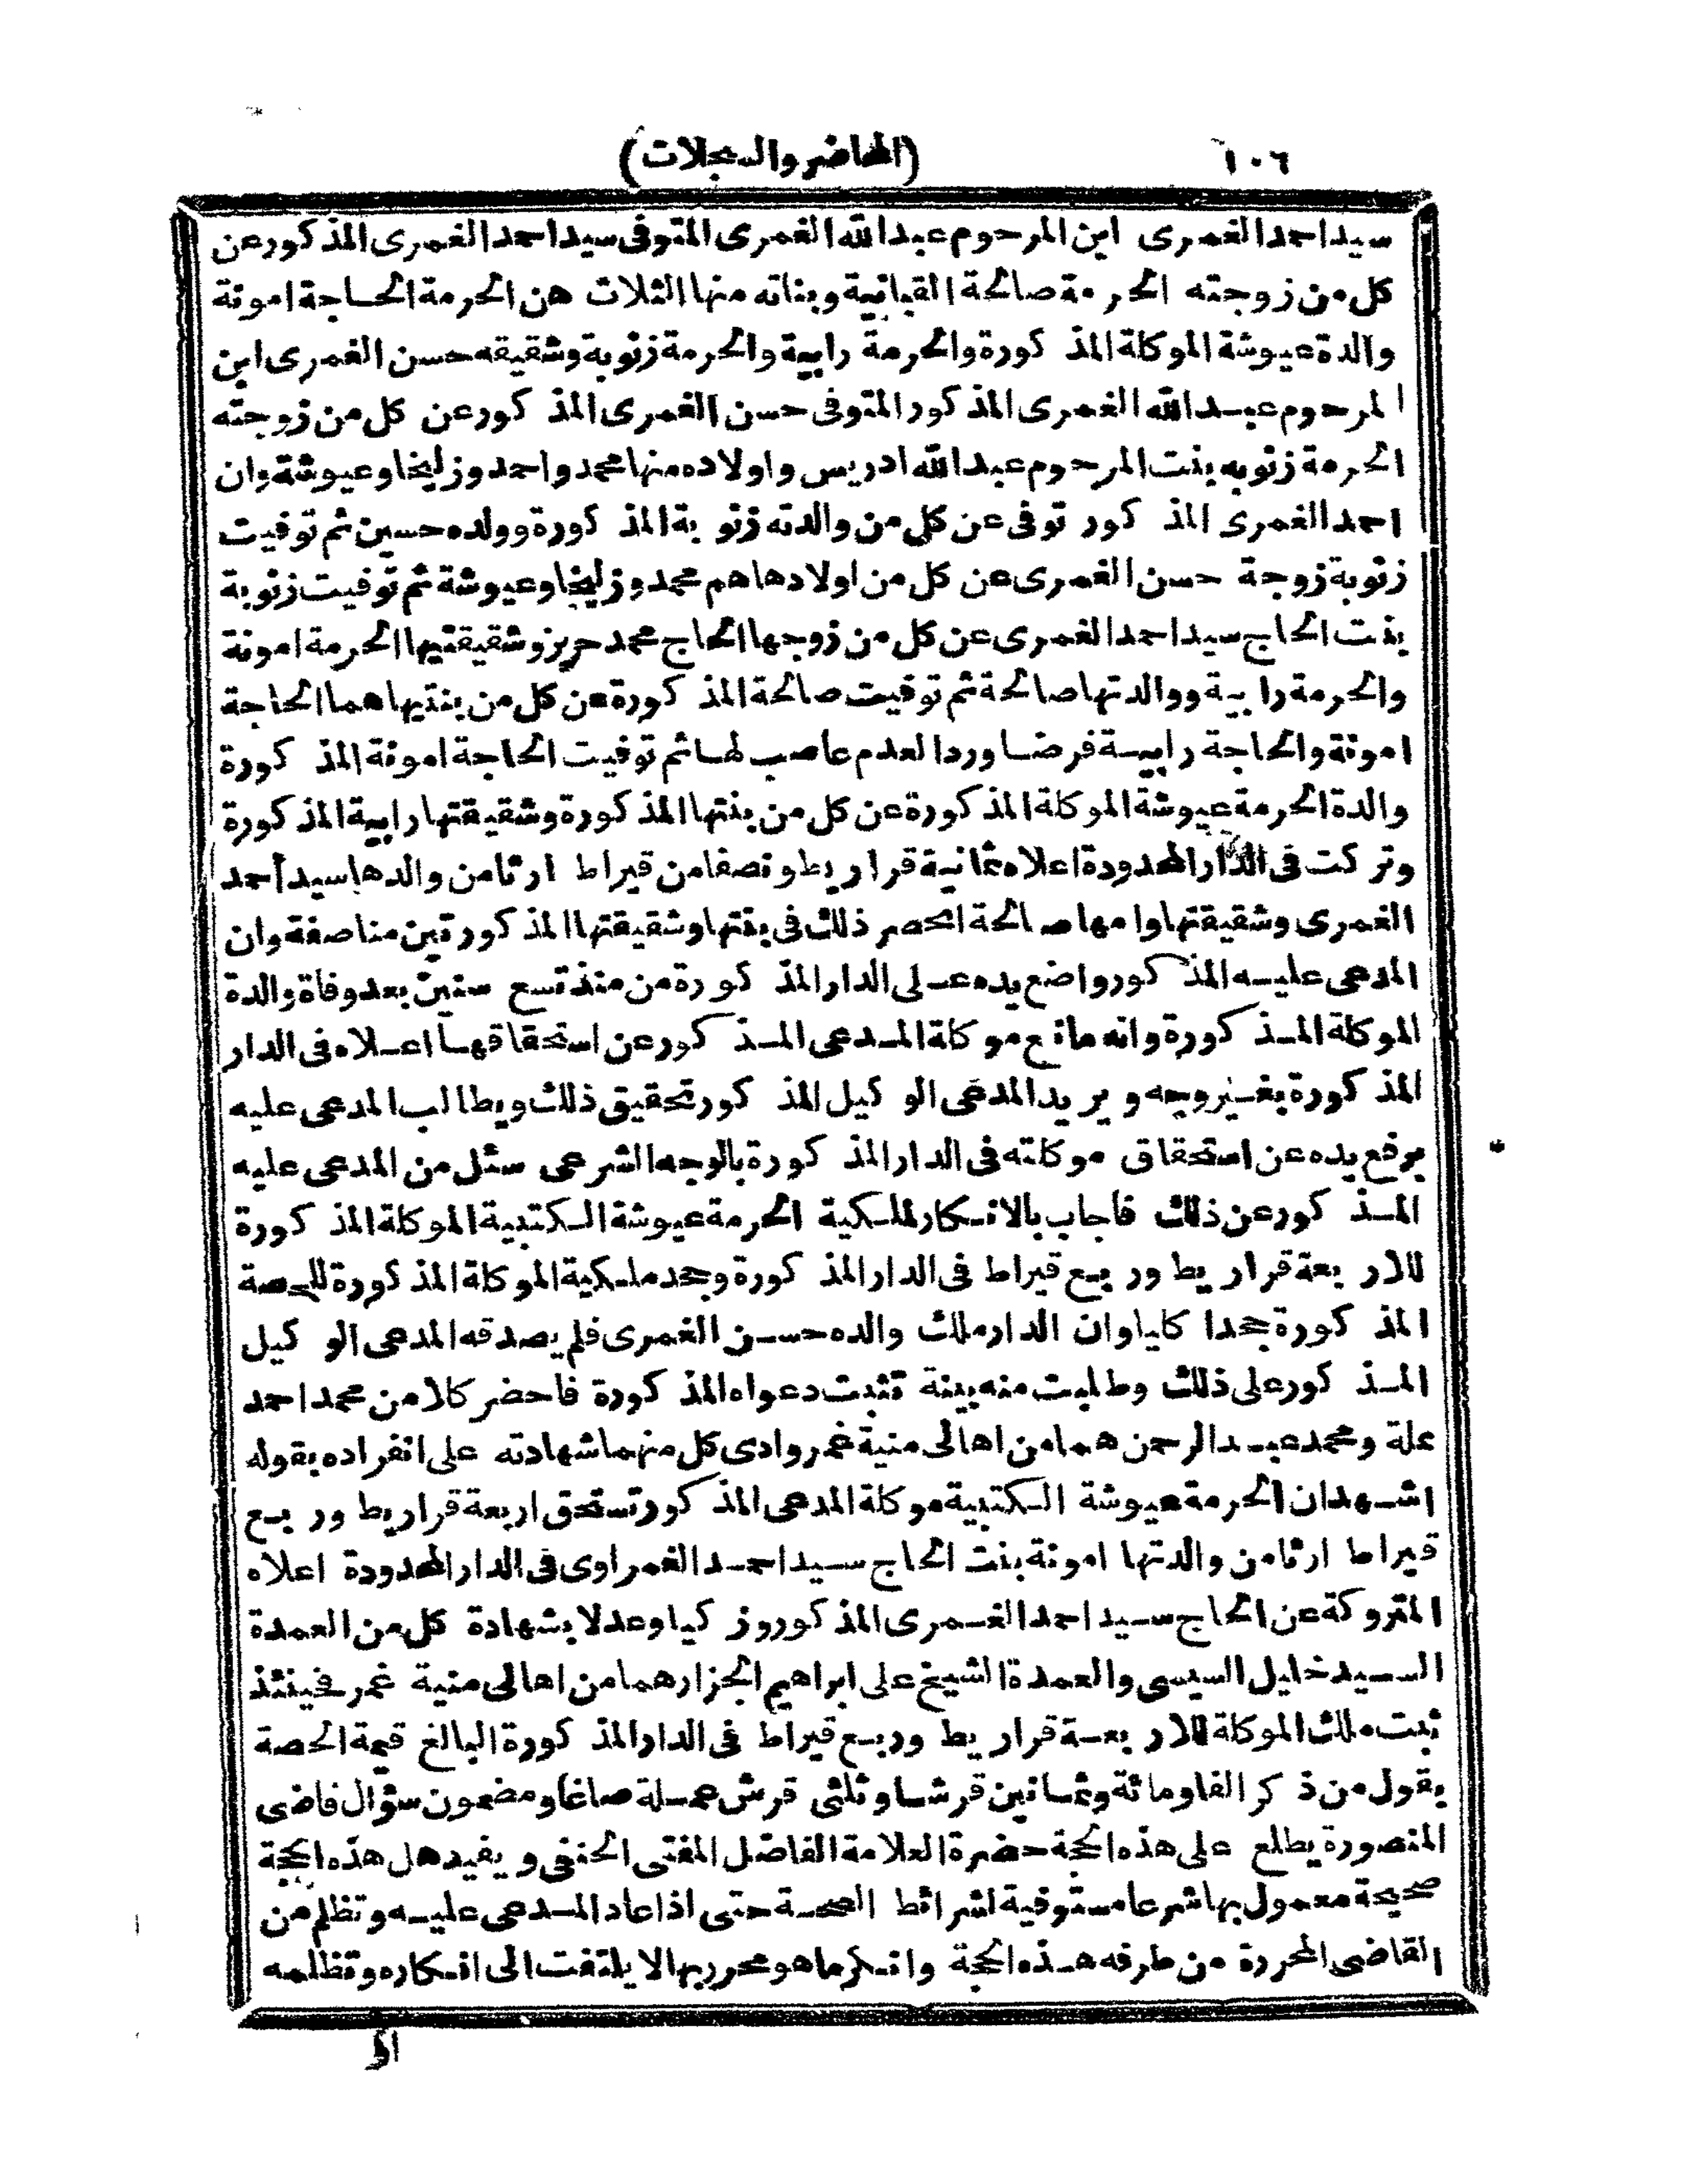 ١٠٦ (المحاضر والسجلات)
سيد احمد الغمرى ابن المرحوم عبد الله الغمرى المتوفى سيد احمد الغمرى المذكور عن
كل من زوجته الحرمة صالحة القبانية وبناته منها الثلاث هن الحرمة الحاجة امونة
والدة عيوشة الموكلة المذكورة والحرمة رابية والحرمة زنوبة وشقيقه حسن الغمرى ابن
المرحوم عبد الله الغمرى المذكور المتوفى حسن الغمرى المذكور عن كل من زوجته
الحرمة زنوبه بنت المرحوم عبد الله ادريس واولاده منها محمد واحمد وزليخا وعيوشة وان
احمد الغمرى المذكور توفى عن كل من والدته زنوبة المذكورة وولده حسين ثم توفيت
زنوبة زوجة حسن الغمرى عن كل من اولادها هم محمد وزليخا وعيوشة ثم توفيت زنوبة
بنت الحاج سيد احمد الغمرى عن كل من زوجها الحاج محمد حريز وشقيقتيها الحرمة امونة
والحرمة رابية ووالدتها صالحة ثم توفيت صالحة المذكورة عن كل من بنتيها هما الحاجة
امونة والحاجة رابية فرضا وردا لعدم عاصب لها ثم توفيت الحاجة امونة المذكورة
والدة الحرمة عيوشة الموكلة المذكورة عن كل من بنتها المذكورة وشقيقتها رابية المذكورة
وتركت فى الدار المحدودة اعلاه ثمانية قراريط ونصفا من قيراط ارثا من والدها سيد أحمد
الغمرى وشقيقتها وامها صالحة انحصر ذلك فى بنتها وشقيقتها المذكورتين مناصفة وان
المدعى عليه المذكور واضع يده على الدار المذكورة من منذ تسع سنين بعد وفاة والدة
الموكلة المذكورة وانه مانع موكلة المدعى المذكور عن استحقاقها اعلاه فى الدار
المذكورة بغير وجه ويريد المدعى الوكيل المذكور تحقيق ذلك ويطالب المدعى عليه
برفع يده عن استحقاق موكلته فى الدار المذكورة بالوجه الشرعى سئل من المدعى عليه
المذكور عن ذلك فاجاب بالانكار لملكية الحرمة عيوشة الكتبية الموكلة المذكورة
للاربعة قراريط وربع قيراط فى الدار المذكورة وجحد ملكية الموكلة المذكورة للحصة
المذكورة جحدا كليا وان الدار ملك والده حسن الغمرى فلم يصدقه المدعى الوكيل
المذكور على ذلك وطلبت منه بينة تثبت دعواه المذكورة فاحضر كلا من محمد احمد
علة ومحمد عبد الرحمن هما من اهالى منية غمر وادى كل منهما شهادته على انفراده بقوله
اشهد ان الحرمة عيوشة الكتبية موكلة المدعى المذكور تستحق اربعة قراريط وربع
قيراط ارثا من والدتها امونة بنت الحاج سيد احمد الغمراوى فى الدار المحدودة اعلاه
المتروكة عن الحاج سيد احمد الغمرى المذكور وزكيا وعدلا بشهادة كل من العمدة
السيد خليل السيسى والعمدة الشيخ على ابراهيم الجزار هما من اهالى منية غمر فحينئذ
ثبت ملك الموكلة للاربعة قراريط وربع قيراط فى الدار المذكورة البالغ قيمة الحصة
بقول من ذكر الفا ومائة وثمانين قرشا وثلثى قرش عملة صاغا ومضمون سؤال قاضى
المنصورة يطلع على هذه الحجة حضرة العلامة الفاضل المفتى الحنفى ويفيد هل هذه الحجة
صحيحة معمول بها شرعا مستوفية لشرائط الصحة حتى اذا عاد المدعى عليه وتظلم من
القاضى المحررة من طرفه هذه الحجة وانكر ما هو محرر بها لا يلتفت الى انكاره وتظلمه